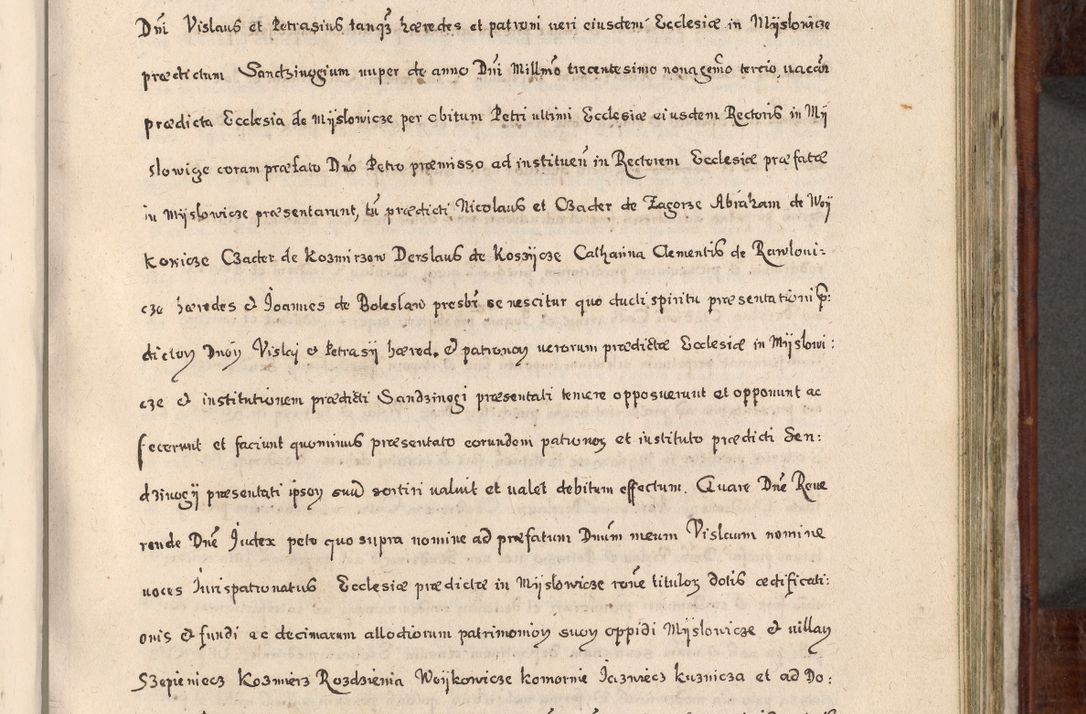 Dni Vislaus et Petrasius tanqz hæredes et patroni veri eiusdem Ecclesiæ in Mÿslowicze
prædictum Sandzinogium nuper de anno Dni Millmo trecentesimo nonagemo tercio, vacan
prædicta Ecclesia de Mÿslowicze per obitum Petri ultimi Ecclesiæ eiusdem Rectoris in Mÿ
slowicze coram præfato Dno Petro præmisso ad instituen in Rectorem Ecclesiæ præfatæ
in Mÿslowicze præsentarunt, tn prædicti Nicolaus et Czader de Zagorze Abraham de Woÿ
kowicze Czader de Kozmirzow Derslaus de Koszÿcze Catharina Clementis de Rawloni:
cze hæredes & Joannes de Boleslaw presbr se nescitur quo ducti spiritu præsentationi p:
dictoy Dnoy Vislai & Petrasij hæred. & patronoy verorum prædictæ Ecclesiæ in Mÿslowi:
cze & institutionem prædicti Sandzinogi præsentati temere opposuerunt et opponunt ac
fecerunt et faciunt quominus præsentato eorundem patronoy et instituto prædicti Sen:
dzivogij præsentati ipsoy suũ sortiri valuit et valet debitum effectum. Quare Dne Reue
rende Dne Judex peto quo supra nomine ad præfatum Dnum meum Vislaum nomine
voces Jurispatronatus Ecclesiæ prædictæ in Mÿslowicze rone tituloz dotis ædificati:
onis & fundi ac decimarum allodiorum patrimonioy suoy oppidi Mÿslowicze & villay
Szepieniecz Kozmierz Rozdzienia Woÿkowicze komornie Jazwiecz kuznicza et ad Do: